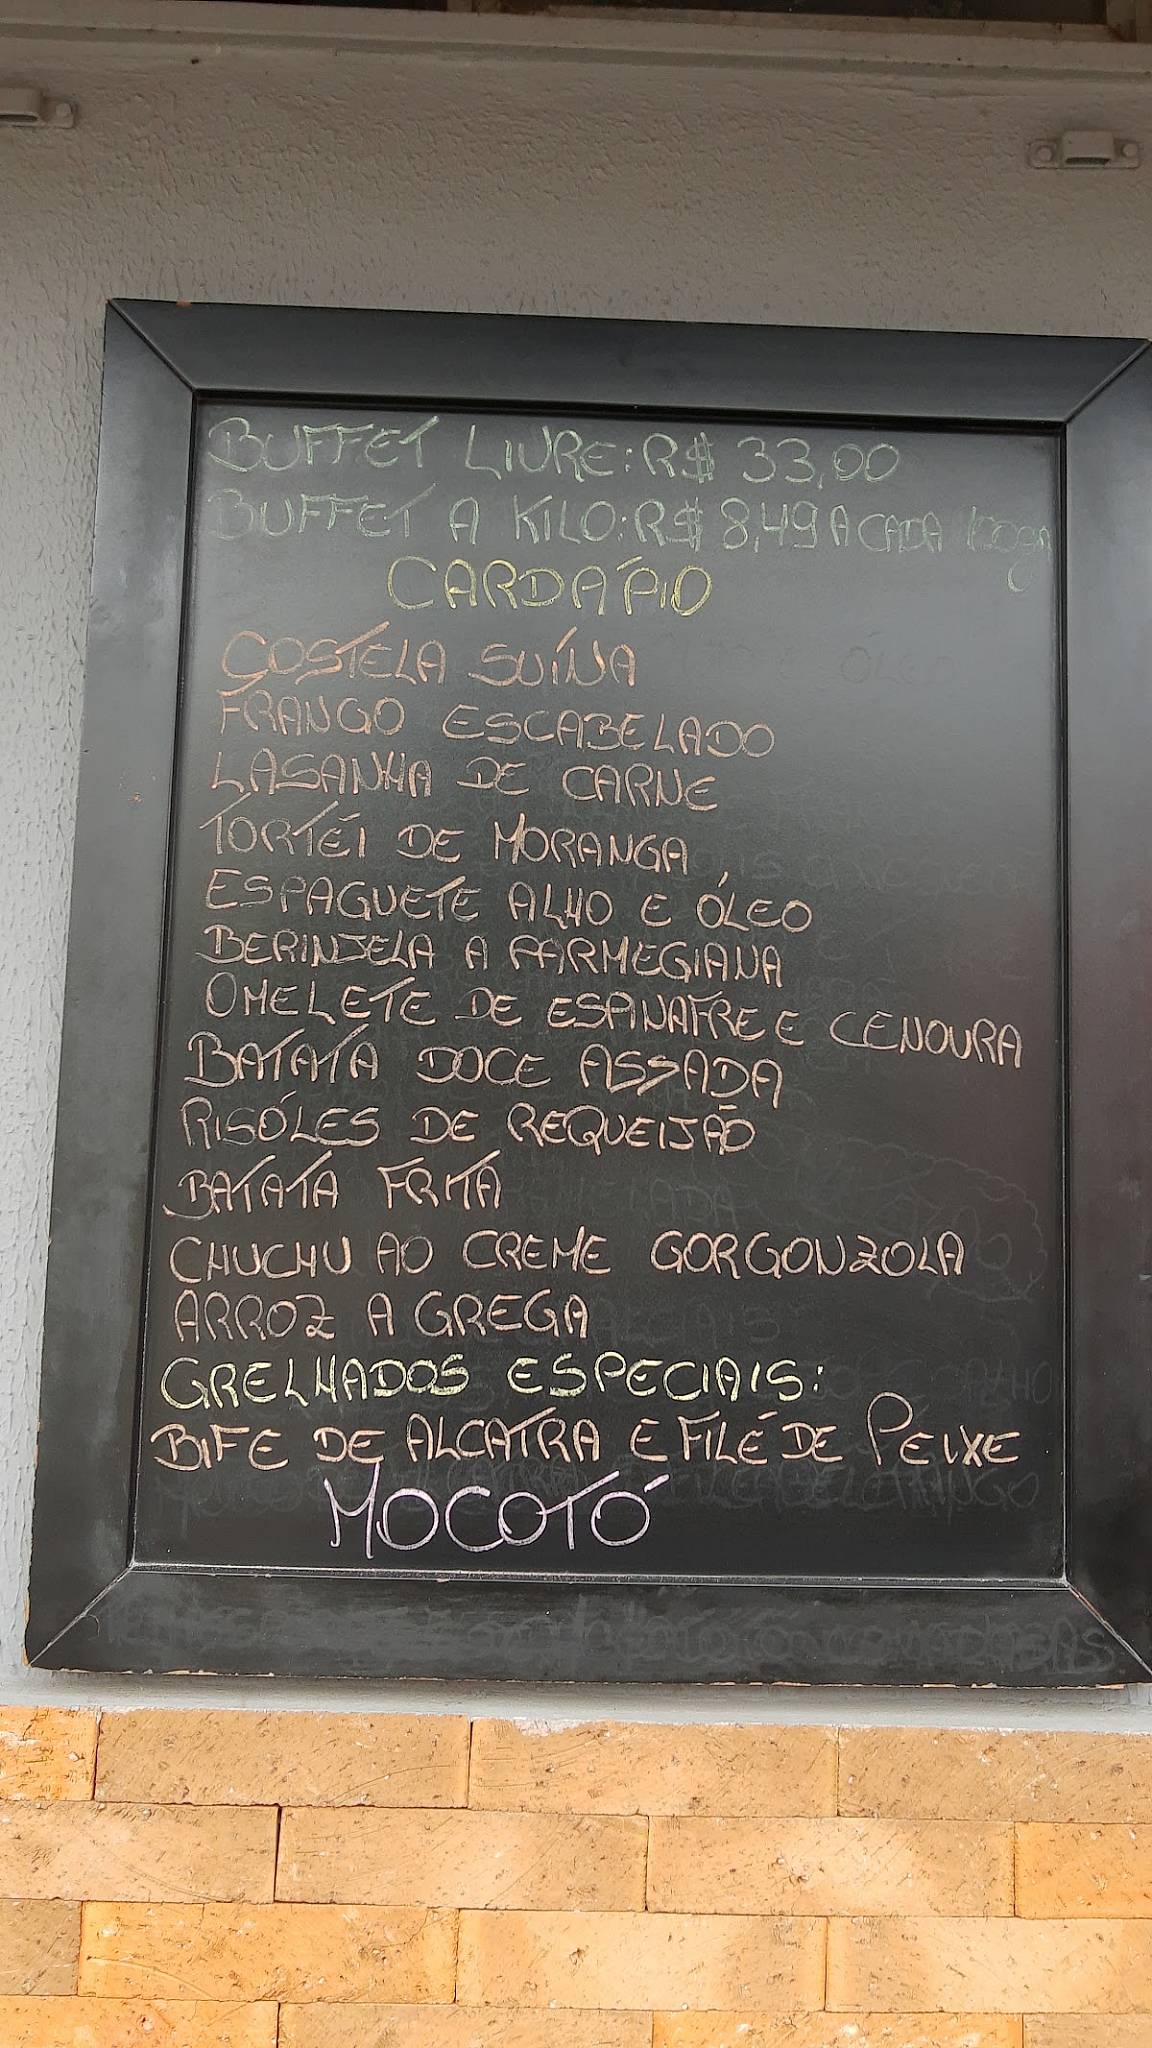 BUFFET LIVRE: R$ 33,00
BUFFET A KILO: R$ 8,49 A CADA 100g
CARDÁPIO
COSTELA SUÍNA
FRANGO ESCABELADO
LASANHA DE CARNE
TORTÉI DE MORANGA
ESPAGUETE ALHO E ÓLEO
BERINJELA A PARMEGIANA
OMELETE DE ESPINAFRE E CENOURA
BATATA DOCE ASSADA
RISÓLES DE REQUEIJÃO
BATATA FRITA
CHUCHU AO CREME GORGONZOLA
ARROZ A GREGA
GRELHADOS ESPECIAIS:
BIFE DE ALCATRA E FILÉ DE PEIXE
MOCOTÓ